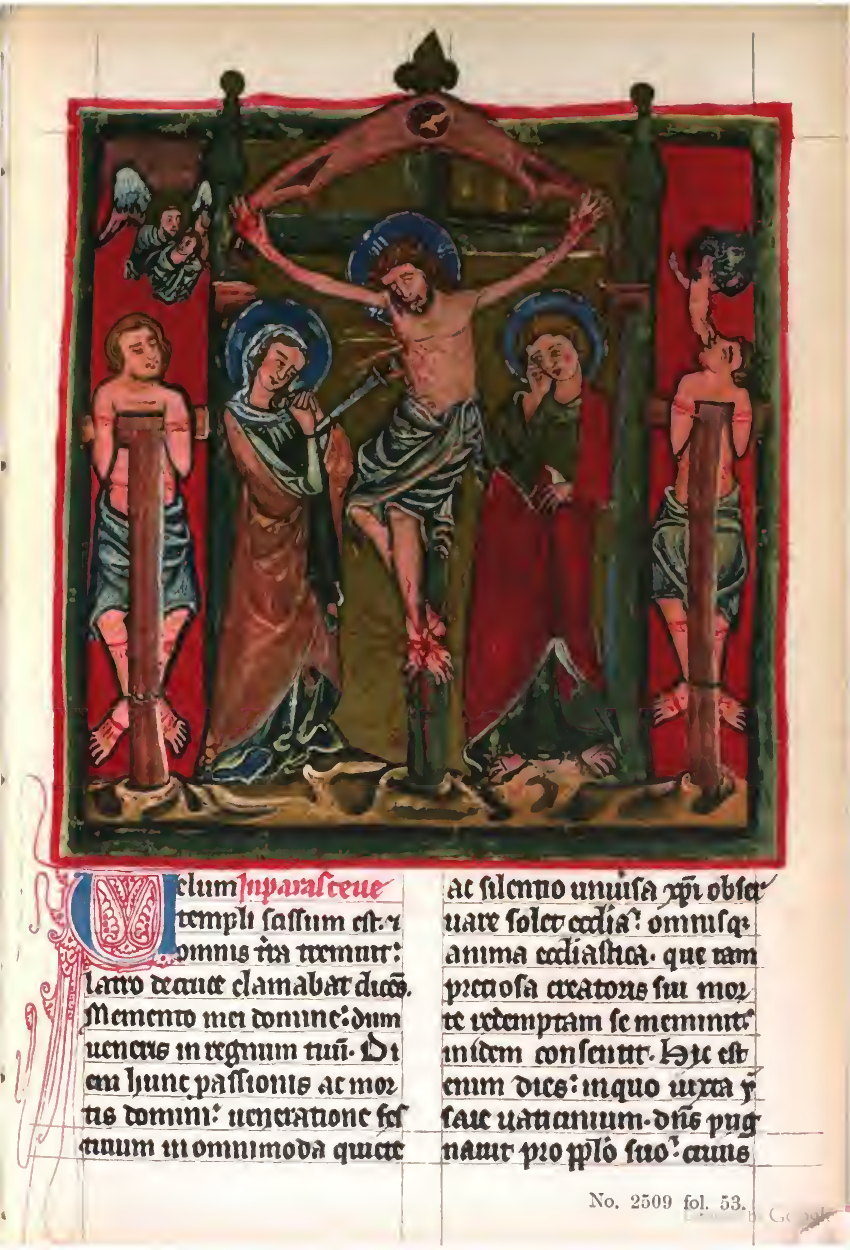 Uelum Inparasceue
templi scissum est. ⁊
omnis t̄ra tremuit:
latro de cruce clamabat dicēs.
Memento mei domine: dum
ueneris in regnum tuū. Di
em hunc passionis ac mor
tis domini: ueneratione fes
tiuum in omnimoda quiete
ac silentio uniuersa xp̄i obser
uare solet eccl̄ia: omnisq;
anima eccl̄iastica. que tam
preciosa creatoris sui mor
te redemptam se meminit:
inidem consentit. Hic est
enim dies: in quo iuxta
saie uaticinium. dn̄s pug
nauit pro pp̄lo suo: cuius
No. 2509 fol. 53.